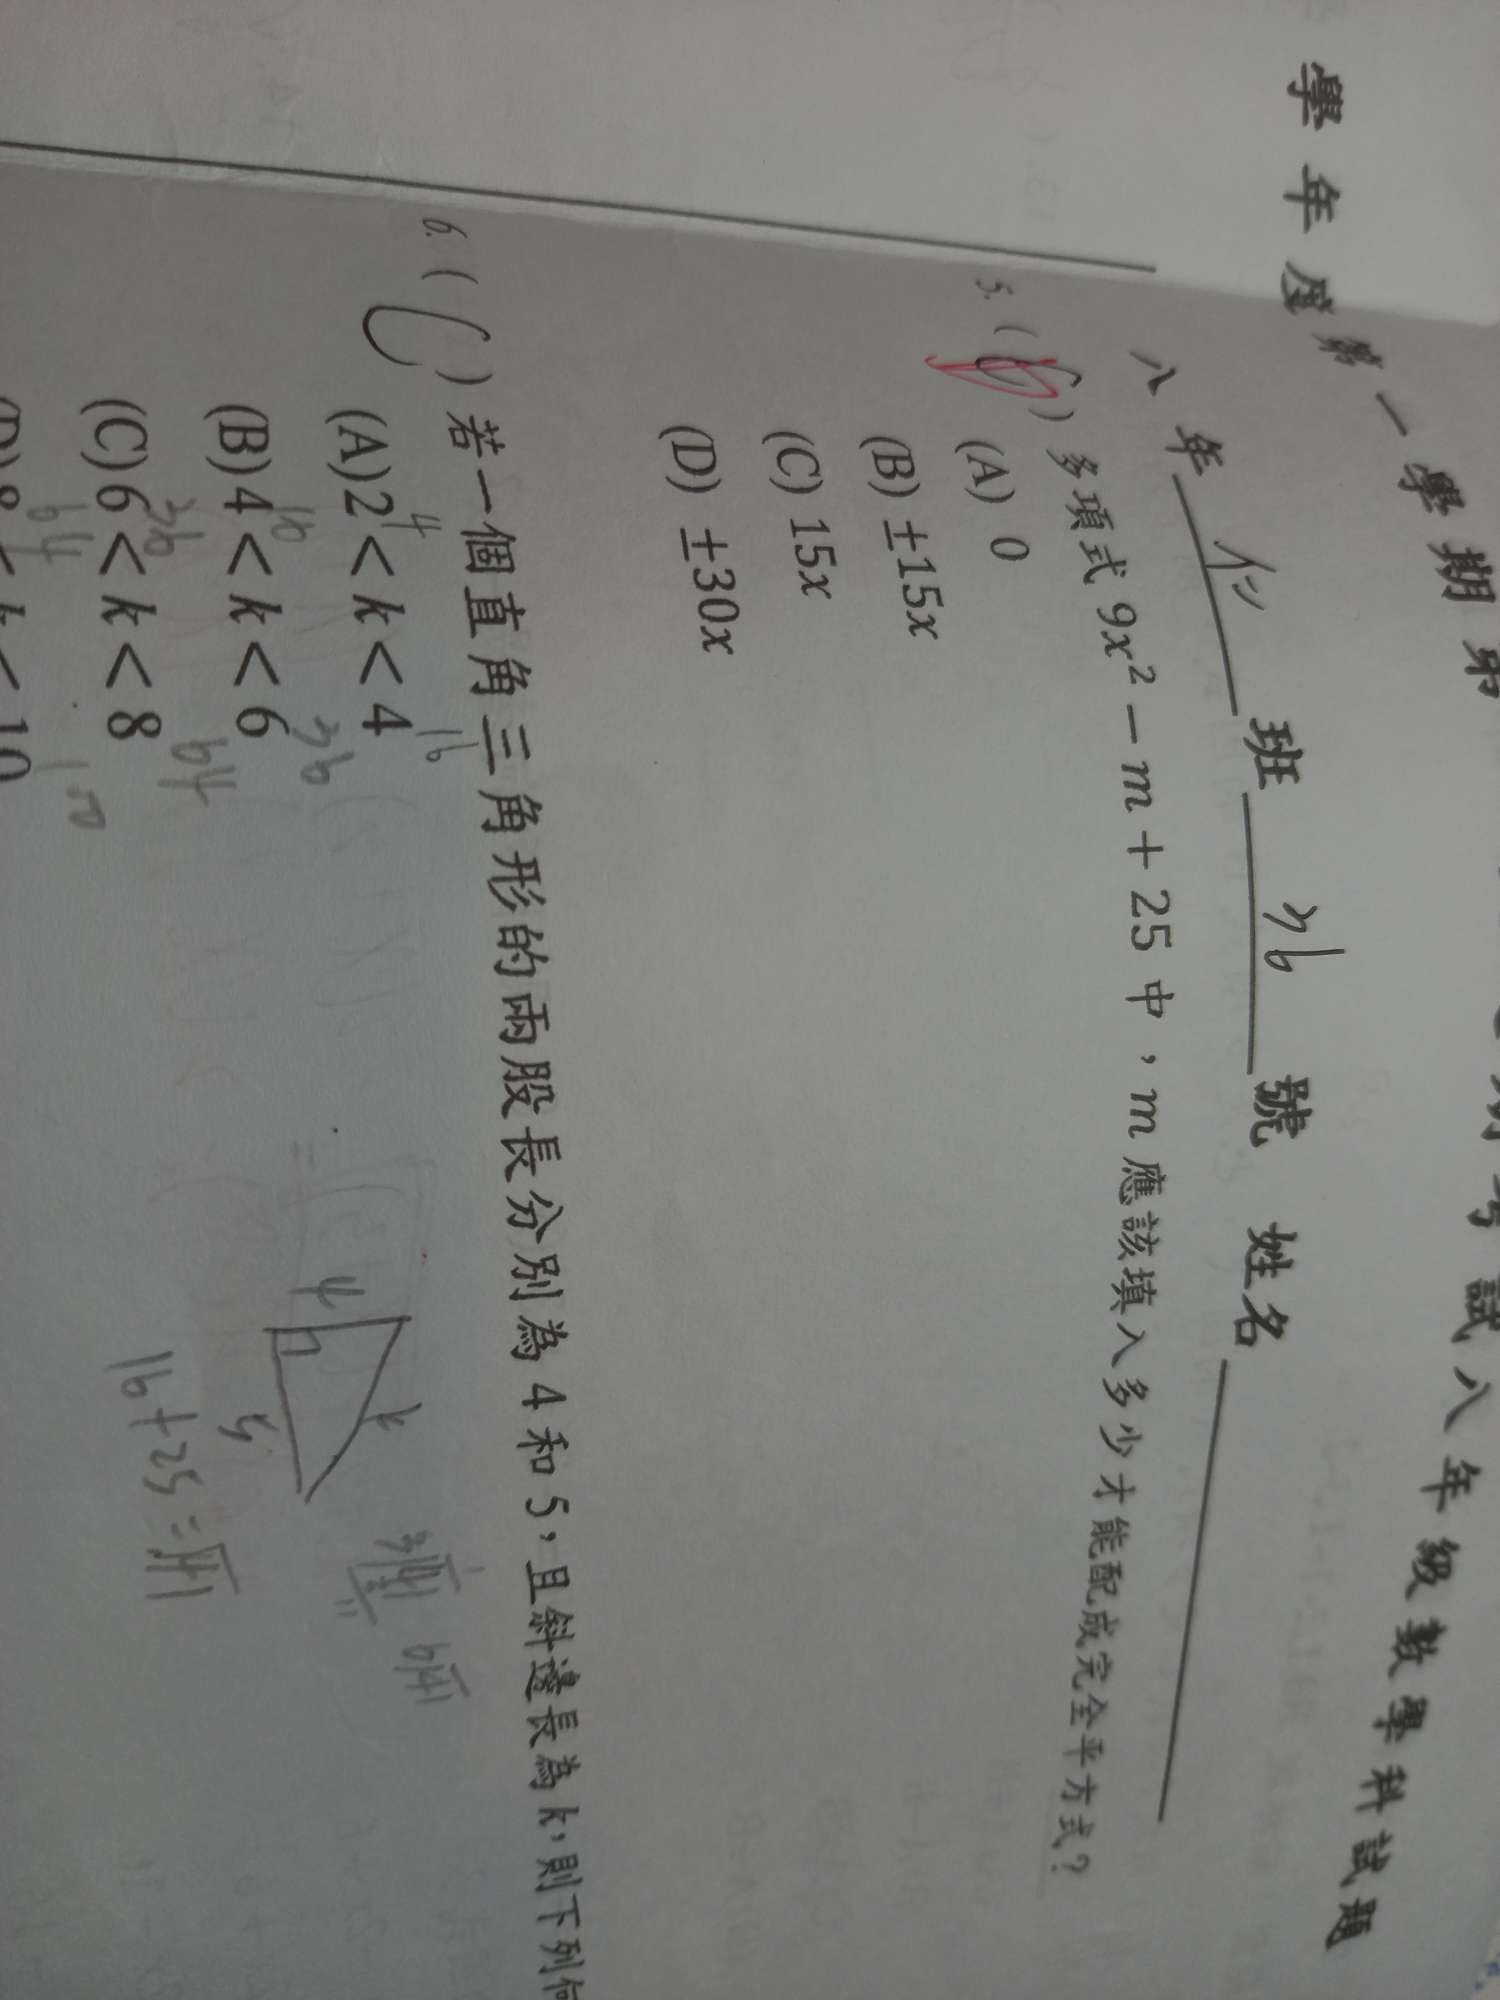 學年度第一學期第 試八年級數學科試題
八年 仁 班 26 號 姓名
5. ( ) 多項式 9x² − m + 25 中，m 應該填入多少才能配成完全平方式？
(A) 0
(B) ±15x
(C) 15x
(D) ±30x
6. ( C ) 若一個直角三角形的兩股長分別為 4 和 5，且斜邊長為 k，則下列何
(A) 2 < k < 4
4 16
(B) 4 < k < 6
16 36
(C) 6 < k < 8
36 64
(D) 8 < k < 10
64 100
4
k
5
16+25=√41
6√41